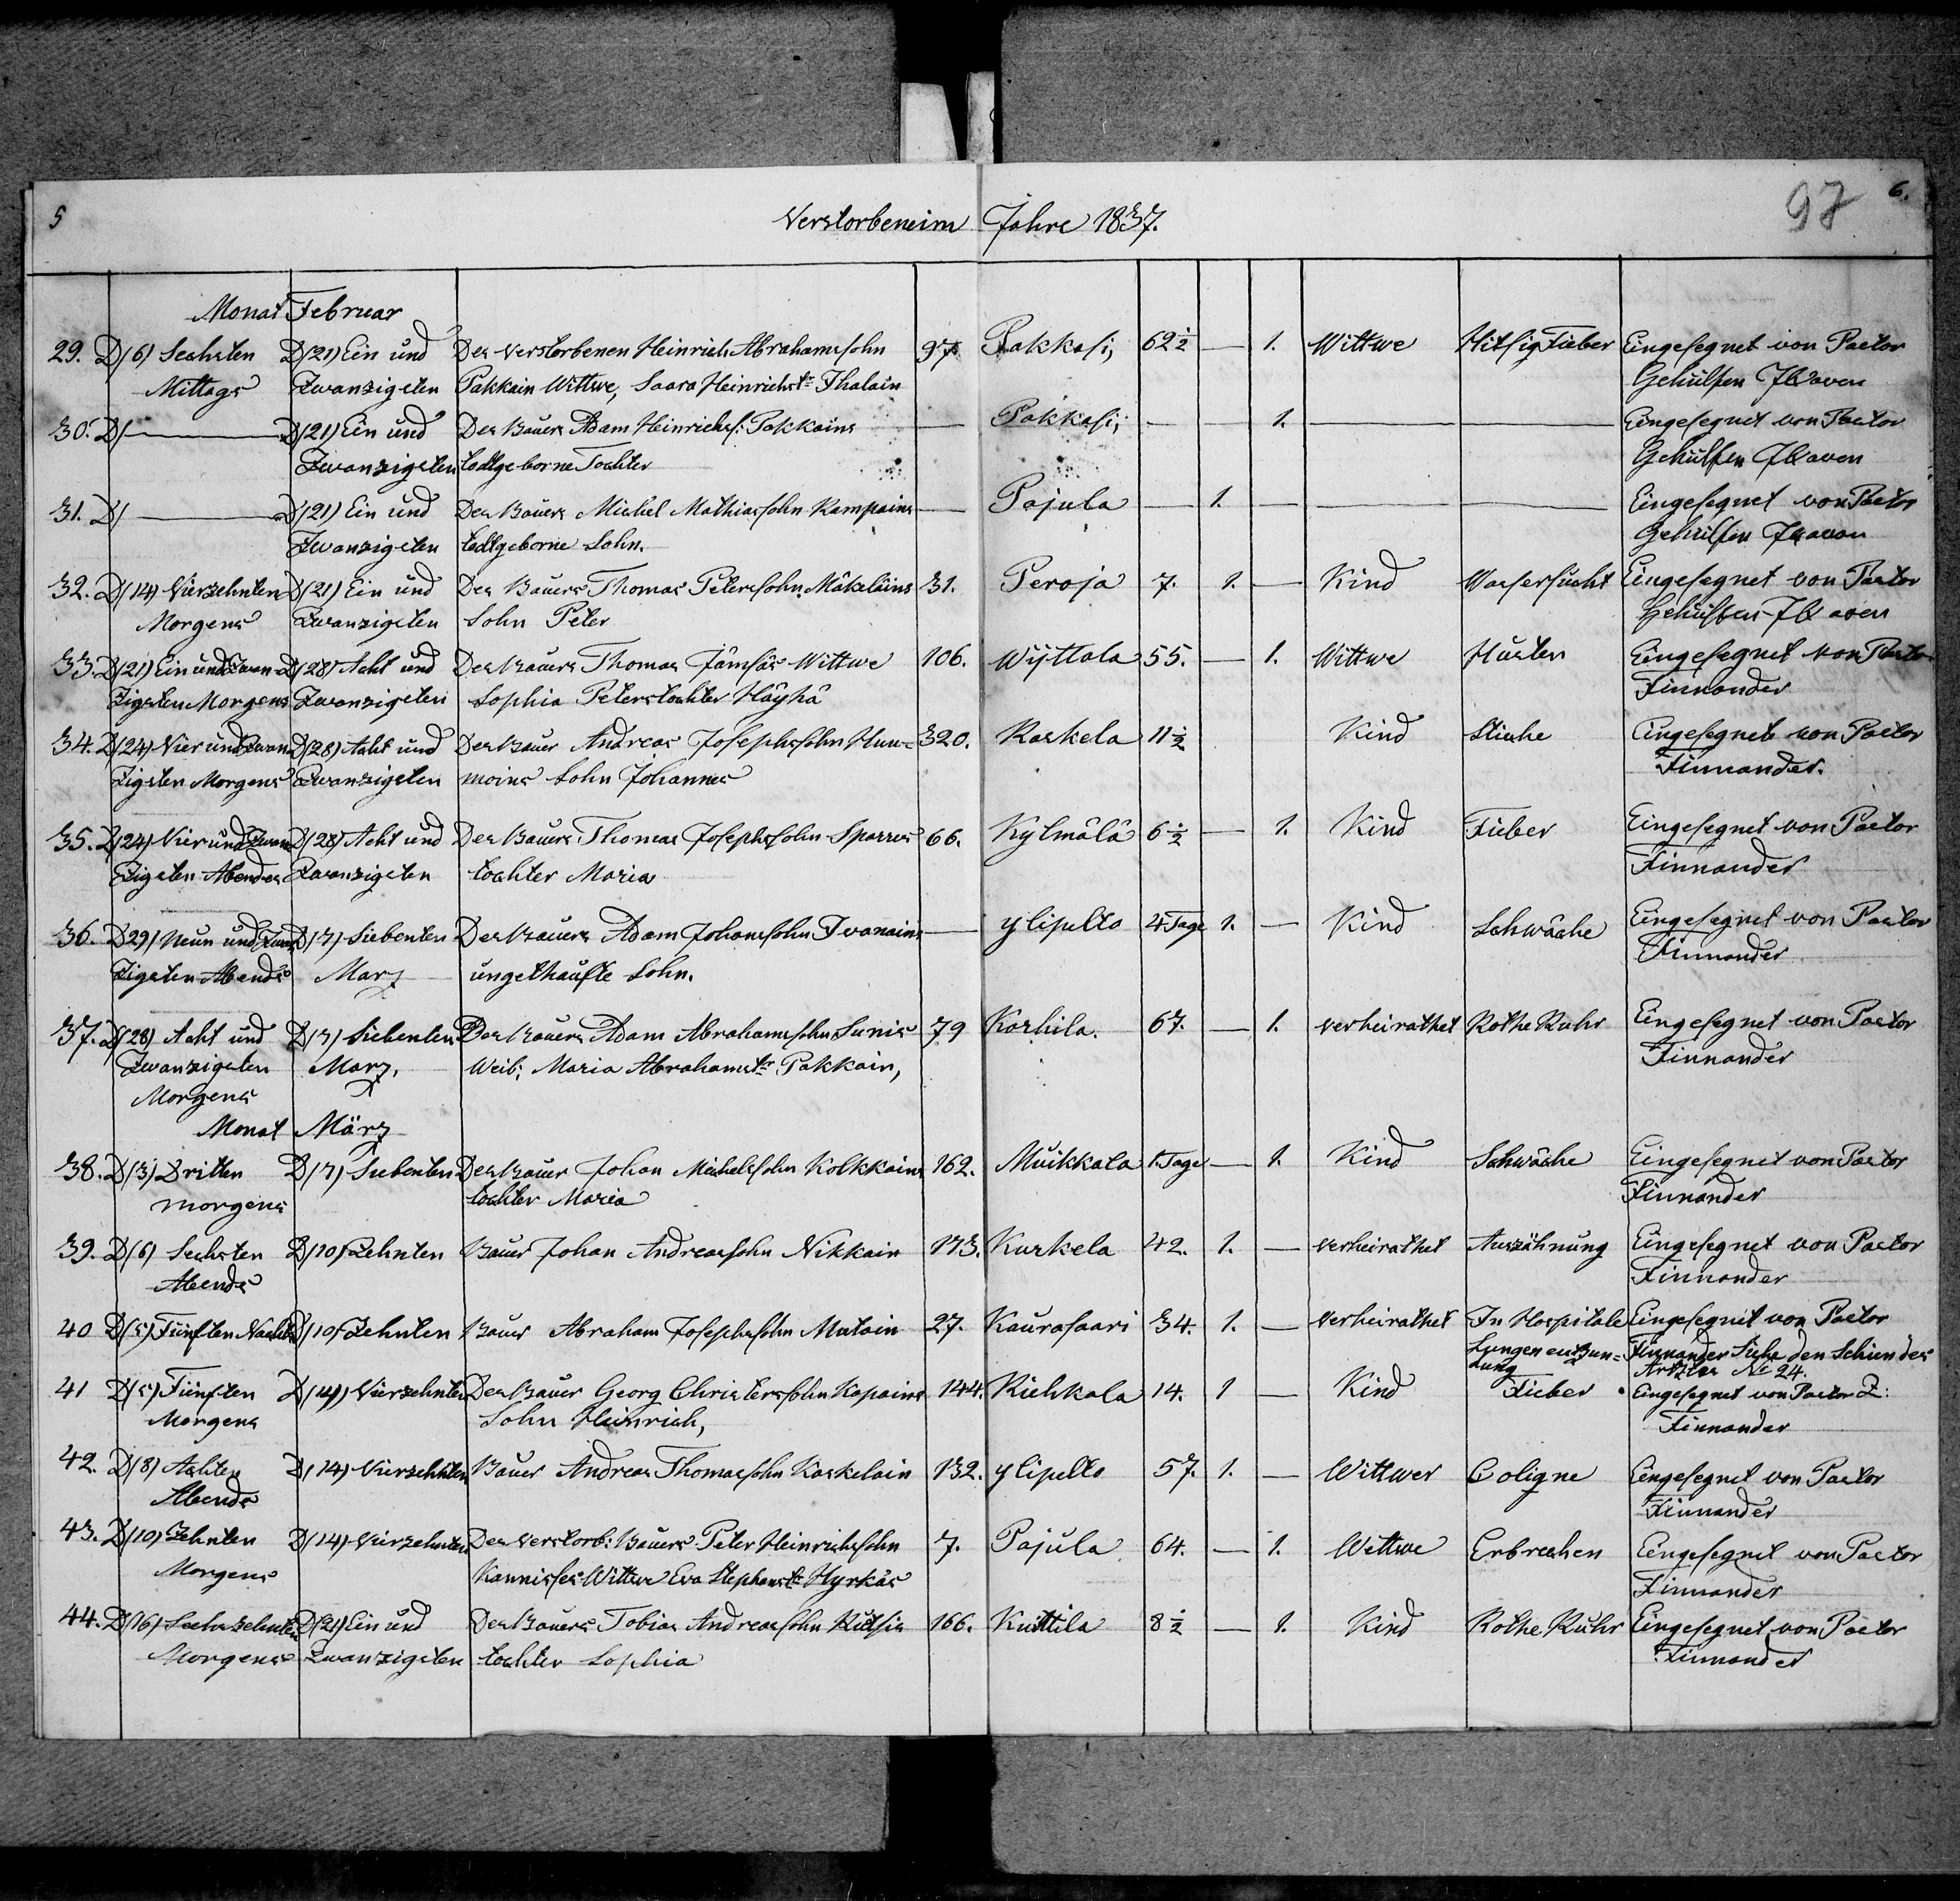 5
Verstorbene im Jahre 1837.
97
6.
Monat Februar
29. D(6) Sechsten D(21) Ein und Des Verstorbenen Heinrich Abrahamssohn 97. Pakkasi, 62½ — 1. Wittwe Hitsig Fieber Eingesegnet von Pastor
Mittags Zwanzigsten Pakkain Wittwe, Saara Heinrichstr Ihalain Gehülfen
30. D(— D(21) Ein und Des Bauers Adam Heinrichs: Pakkains — Pakkasi, — 1. — — Eingesegnet von Pastor
Zwanzigsten todtgeborne Tochter Gehülfen
31. D(— D(21) Ein und Des Bauers Michel Mathiassohn Kampains — Pajula — 1. — — — Eingesegnet von Pastor
Zwanzigsten todtgeborne Sohn. Gehülfen
32. D(14) Vierzehnten D(21) Ein und Des Bauers Thomas Peterssohn Mäkeläins 31. Peroja 7. 1. — Kind Wassersucht Eingesegnet von Pastor
Morgens Zwanzigsten Sohn Peter Gehülfen
33. D(21) Ein und Zwan- D(28) Acht und Des Bauers Thomas Jämsäs Wittwe 106. Wijttala 55. — 1. Wittwe Husten Eingesegnet von Pastor
zigsten Morgens Zwanzigsten Sophia Peterstochter Häyhä Finnander
34. D(24) Vier und Zwan D(28) Acht und Des Bauer Andreas Josephssohn Hun= 320. Kaskela 11½ Kind Stiche Eingesegnet von Pastor
zigsten Morgens Zwanzigsten moins Sohn Johannes Finnander.
35. D(24) Vier und Zwan D(28) Acht und Des Bauers Thomas Josephssohn Sparres 66. Kylmälä 6½ — 1. Kind Fieber Eingesegnet von Pastor
zigsten Abends Zwanzigsten tochter Maria Finnander
36. D29) Neun und Zwan D(7) Siebenten Des Bauers Adam Johanssohn Ivanains — ylipelto 4 Tage 1. — Kind Schwäche Eingesegnet von Pastor
zigsten Abends Marz ungethaufte Sohn. Finnander
37. D(28) Acht und D(7) Siebenten Des Bauers Adam Abrahamssohn Sunis 79 Korhila. 67. — 1. verheirathet Rothe Ruhr Eingesegnet von Pastor
Zwanzigsten Marz. Weib: Maria Abrahamstr Pakkain, Finnander
Morgens
Monat März
38. D(3) Dritten D(7) Siebenten Des Bauer Johan Michelssohn Kolkkains 162. Muikkala 1. Tage — 1. Kind Schwäche Eingesegnet von Pastor
morgens tochter Maria Finnander
39. D(6) Sechsten D(10) Zehnten Bauer Johan Andreassohn Nikkain 173. Kurkela 42. 1. — verheirathet Auszähnung Eingesegnet von Pastor
Abends Finnander
40 D(5) Fünften Nachts D(10) Zehnten Bauer Abraham Josephssohn Mutain 27. Kaurasaari 34. 1. — verheirathet In Hospitale Eingesegnet von Pastor
Lungenentzun= Finnander Siehe den Schein des
dung Artztes No 24.
41 D(5) Fünften D(14) Vierzehnten Des Bauer Georg Christerssohn Kapains 144. Kiehkala 14. 1 — Kind Fieber Eingesegnet von Pastor Z:
Morgens Sohn Heinrich, Finnander
42. D(8) Achten D(14) Vierzehnten Bauer Andreas Thomassohn Kaskelain 132. ylipelto 57. 1. — Wittwer Coligne Eingesegnet von Pastor
Abends Finnander
43. D(10) Zehnten D(14) Vierzehnten Des Verstorb: Bauers Peter Heinrichssohn 7. Pajula 64. — 1. Wittwe Erbrechen Eingesegnet von Pastor
Morgens Kannisses Wittwe Eva Stephanstr Hyrkäs Finnander
44. D(16) Sechszehnten D(21) Ein und Des Bauers Tobias Andreassohn Kutsis 166. Kuttila 8½ — 1. Kind Rothe Ruhr Eingesegnet von Pastor
Morgens Zwanzigsten tochter Sophia Finnander